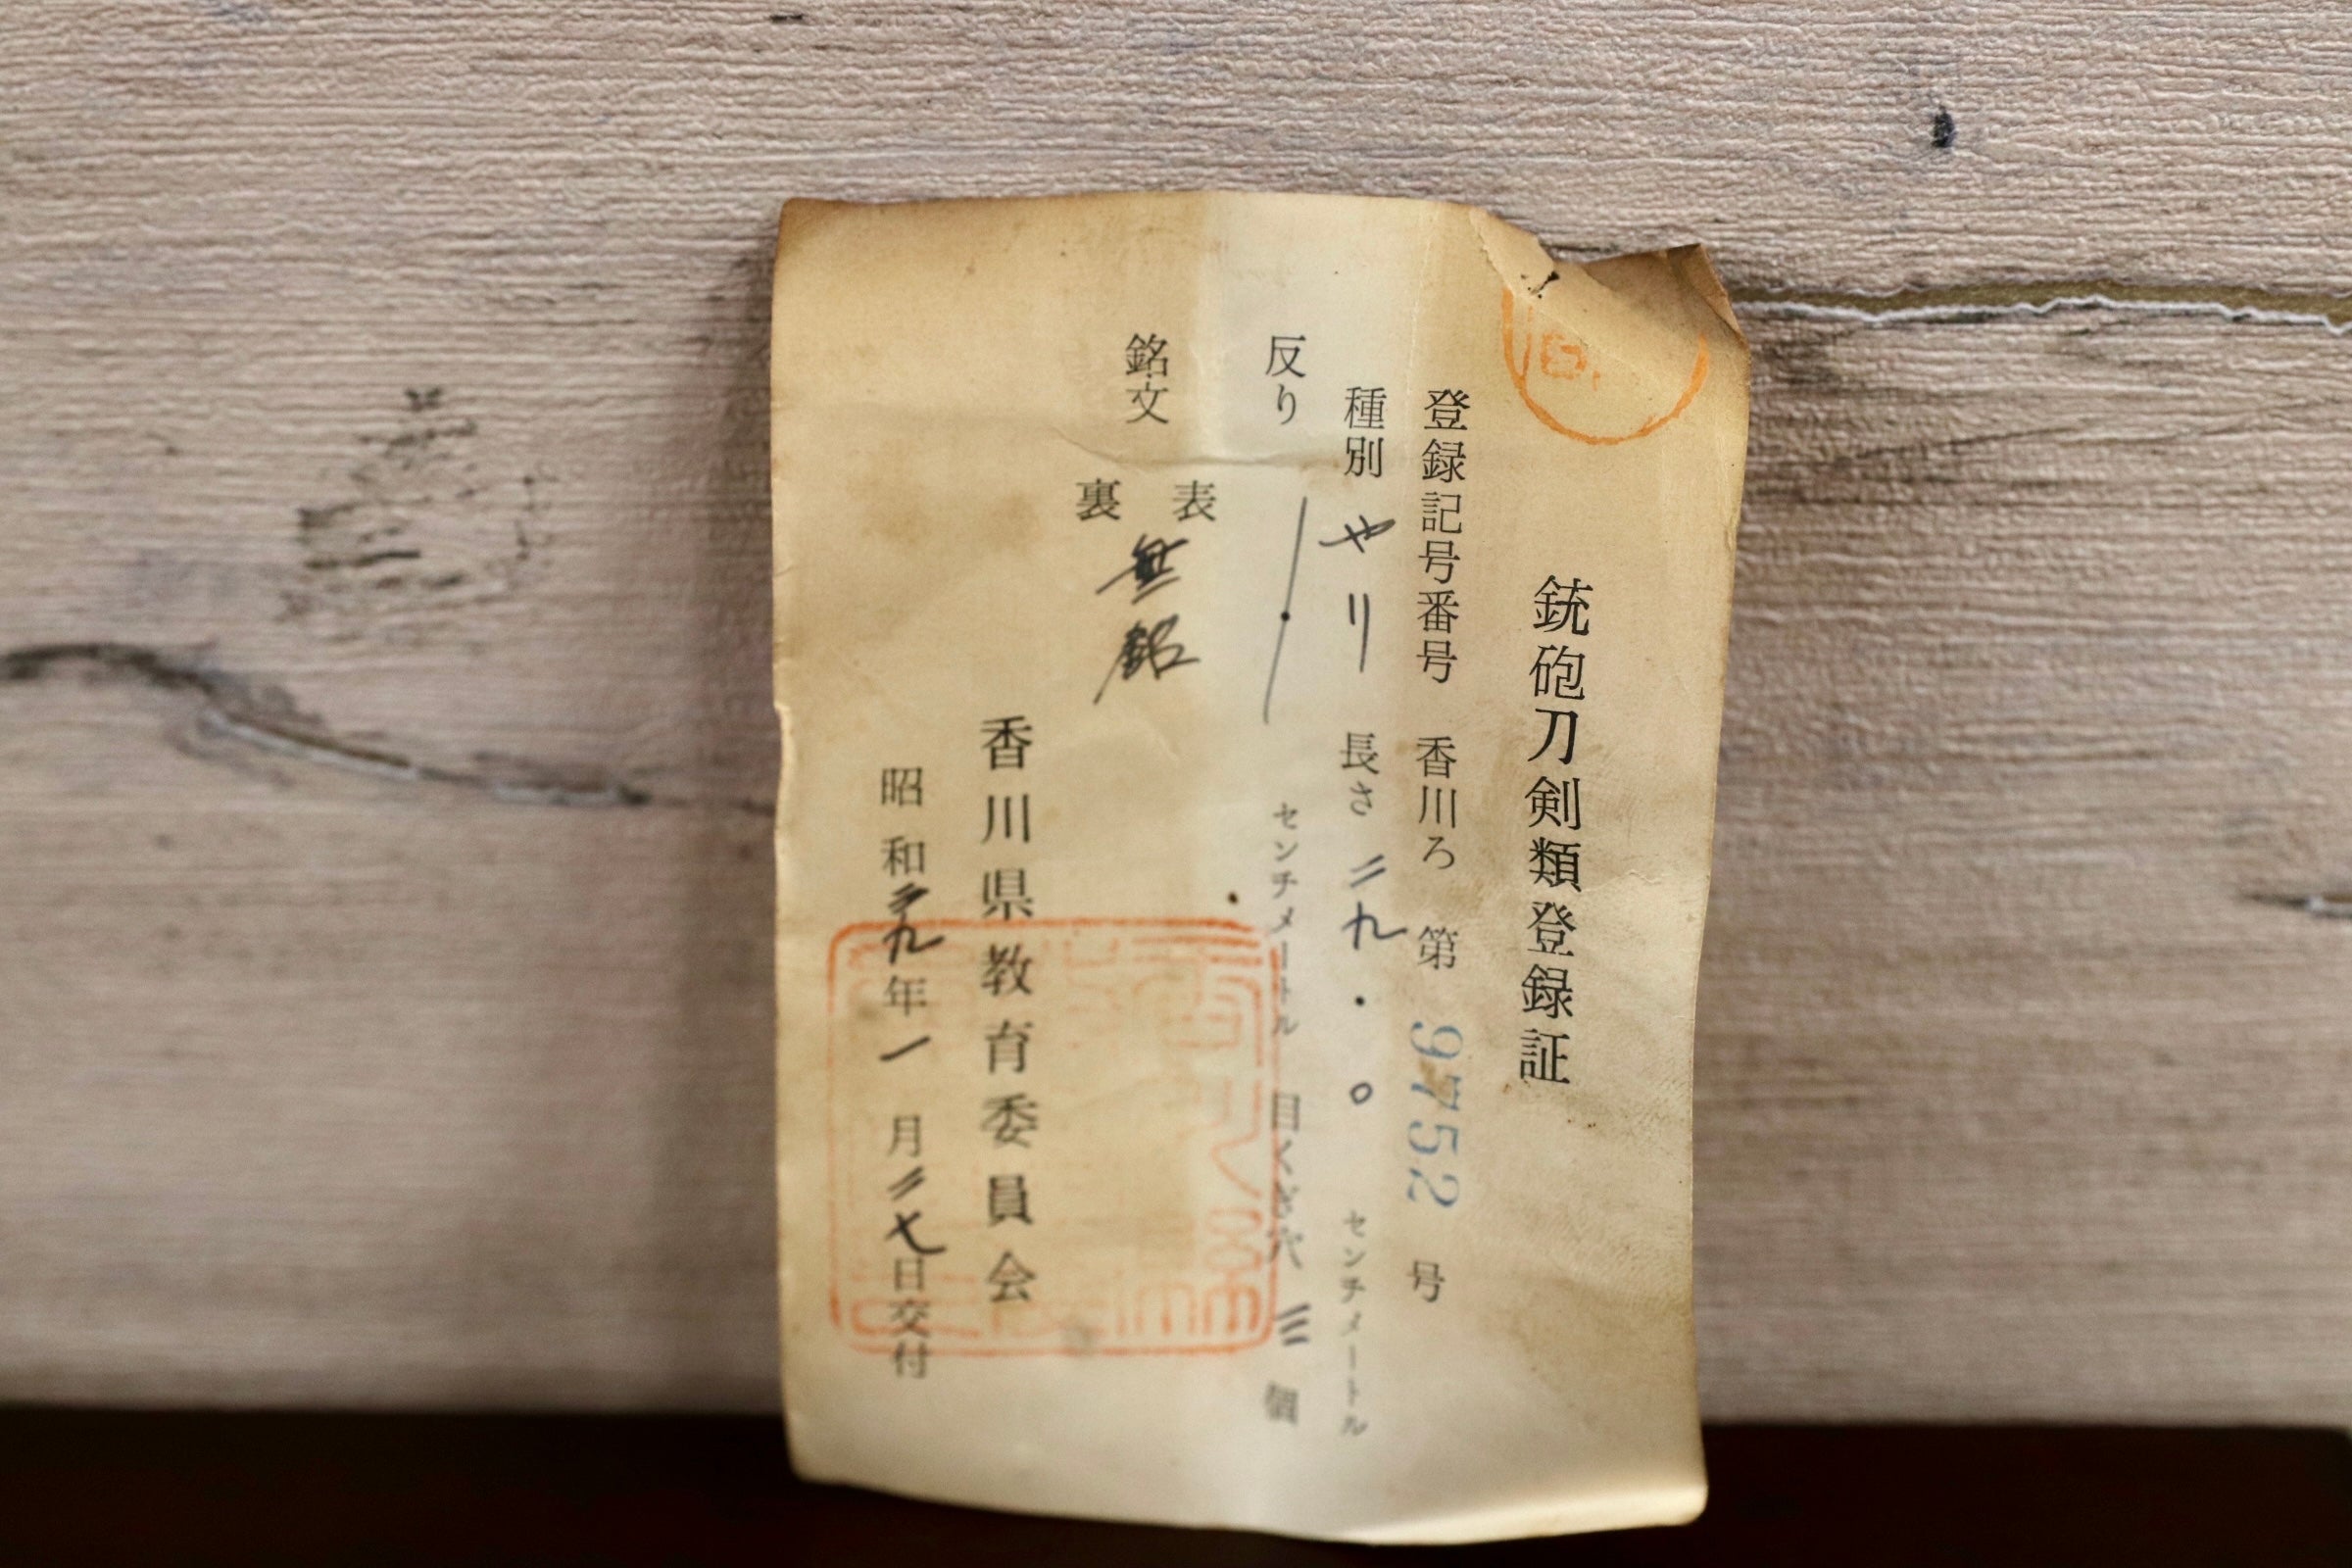 銃砲刀剣類登録証
登録記号番号 香川ろ 第 9752 号
種別 やり 長さ 二九・〇 センチメートル
反り センチメートル 目くぎ穴 三 個
銘文
表
裏
無銘
香川県教育委員会
昭和 年一月二七日交付